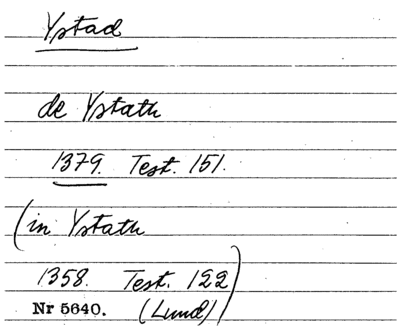 Ystad
de Ystath
1379. Test. 151.
(in Ystath
1358. Test. 122)
Nr 5640. (Lund)